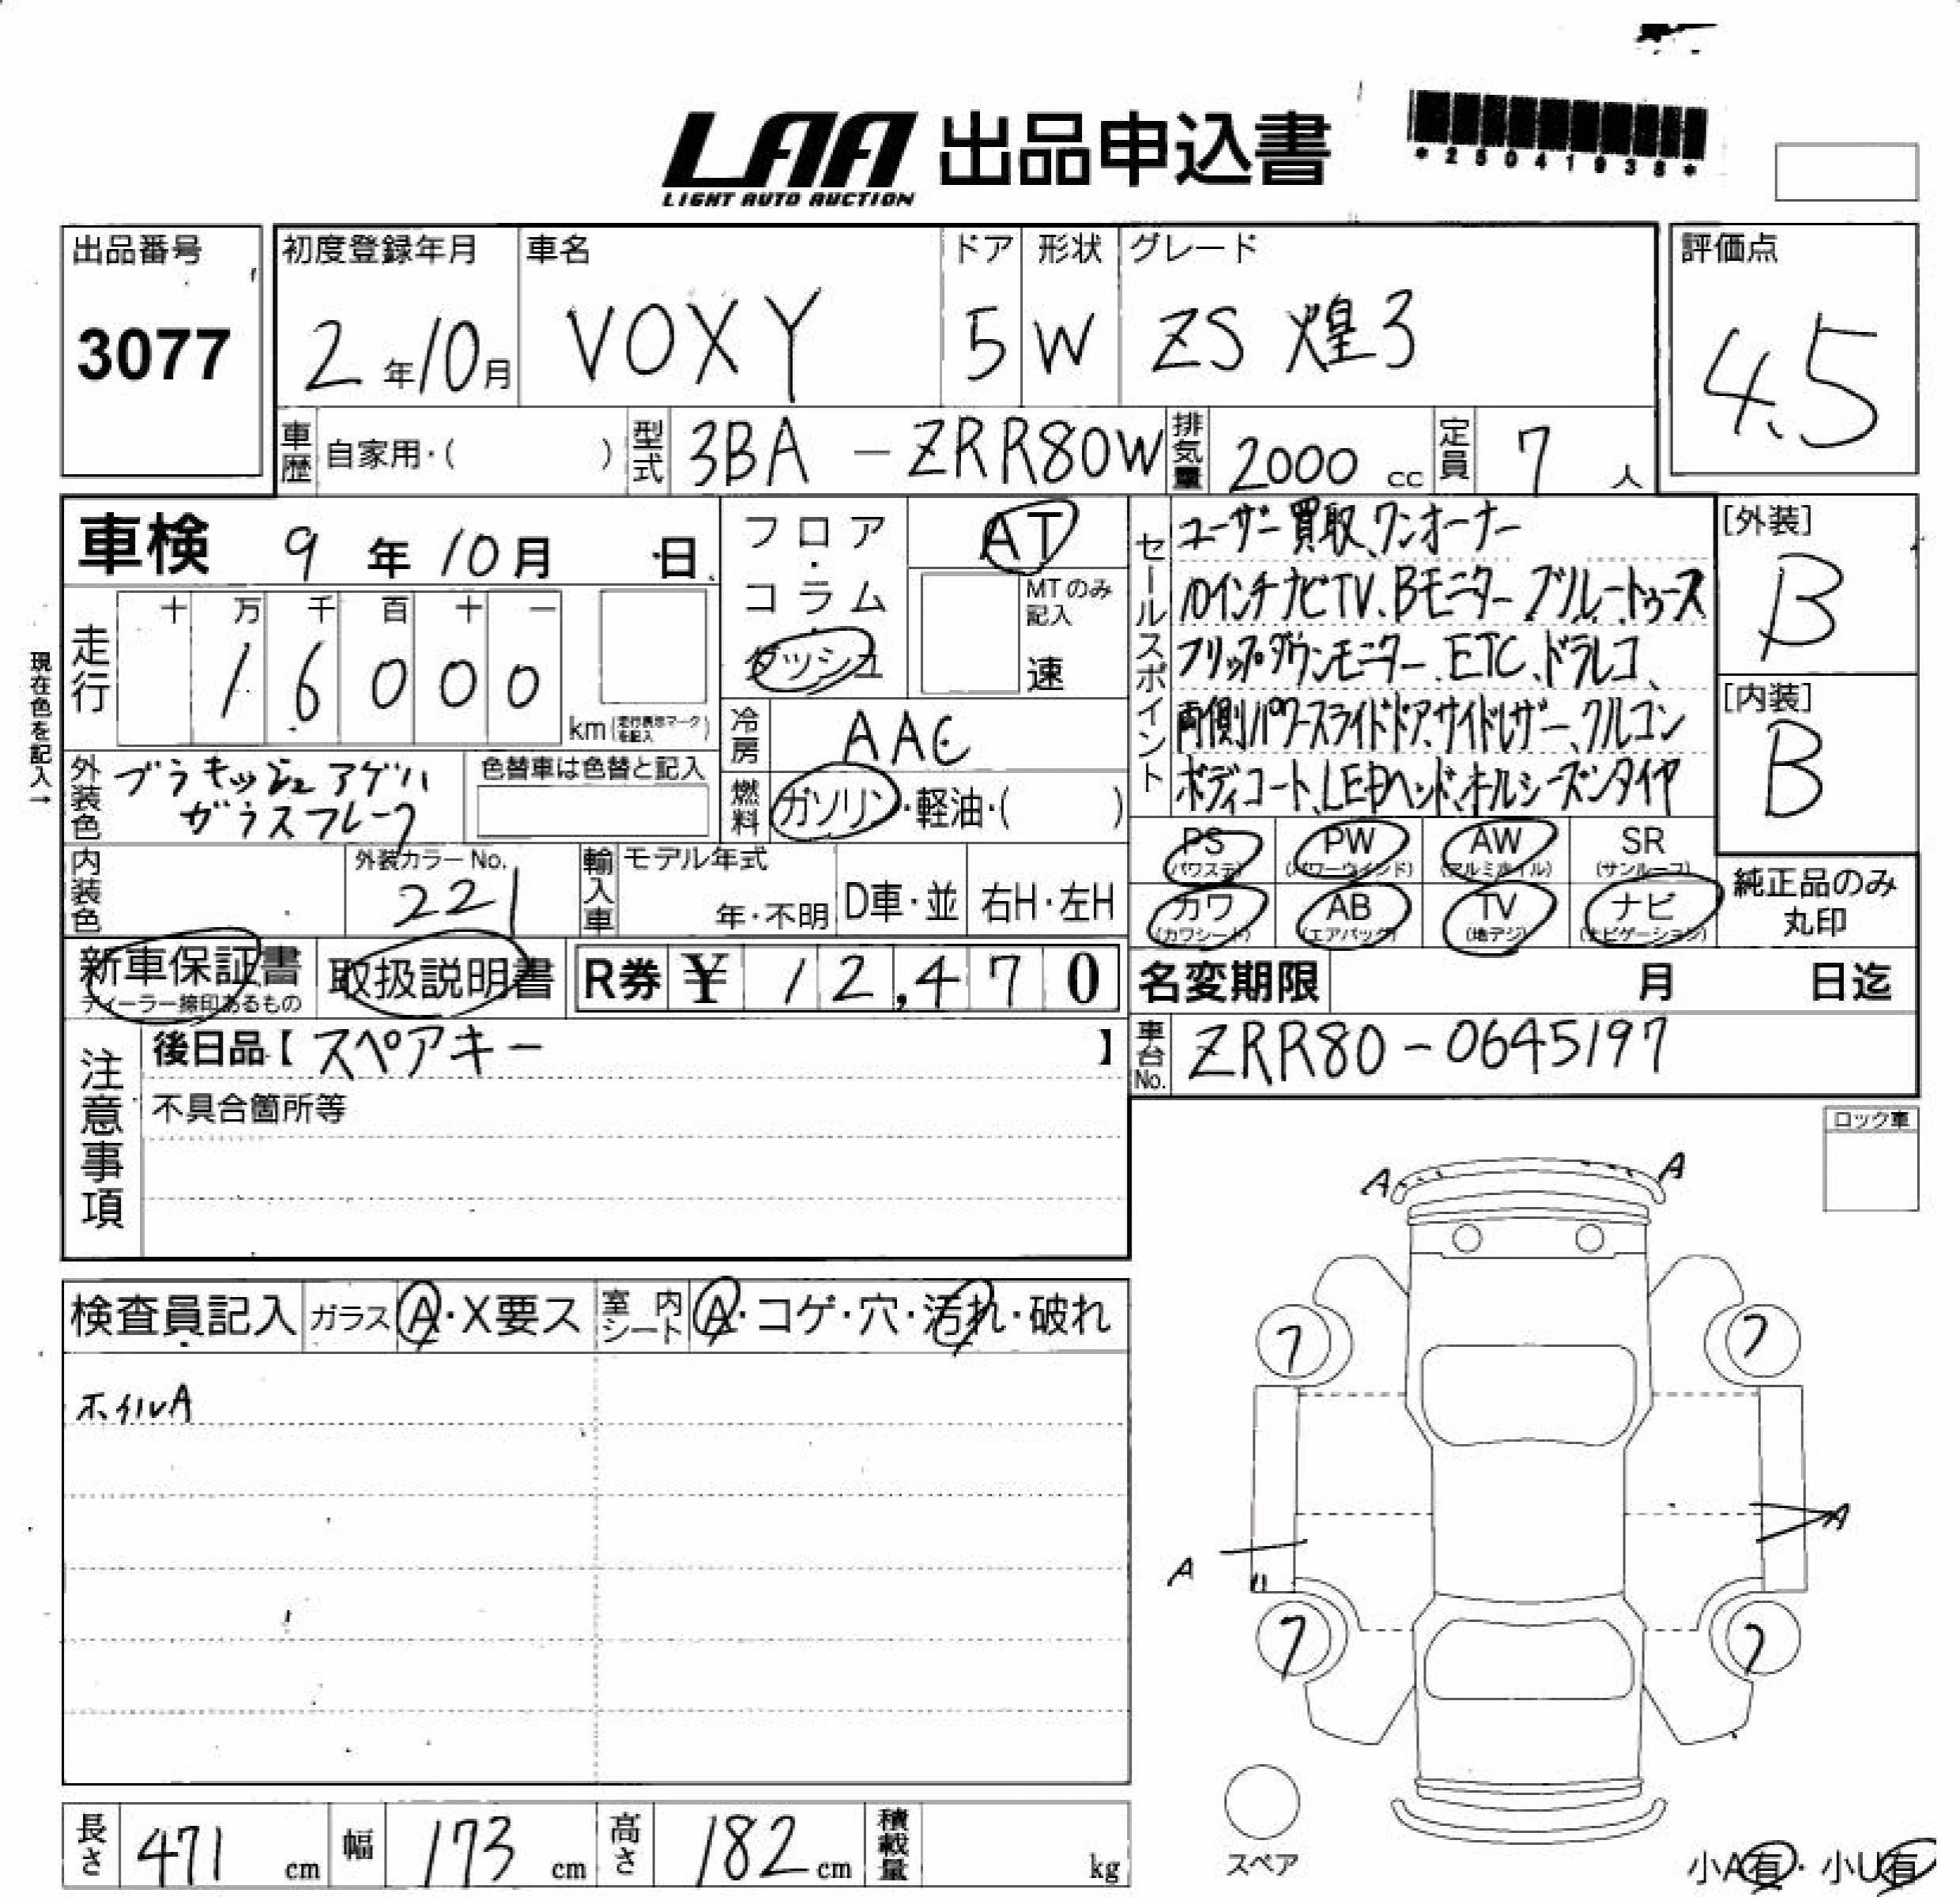 LAA 出品申込書
LIGHT AUTO AUCTION
*25041938*
出品番号
3077
初度登録年月
2年10月
車名
VOXY
ドア
5
形状
W
グレード
ZS 煌3
評価点
4.5
車歴 自家用・( )
型式 3BA-ZRR80W
排気量 2000 cc
定員 7 人
車検 9年10月 日
フロア・コラム・ダッシュ
AT
MTのみ記入
速
セールスポイント
ユーザー買取、ワンオーナー
10インチナビTV、Bモニター ブルートゥース
フリップダウンモニター、ETC、ドラレコ、
両側パワースライドドア、サイドレザー、クルコン
ボディコート、LEDヘッド、オールシーズンタイヤ
[外装]
B
[内装]
B
現在色を記入→
走行
十 万 千 百 十 一
1 6 0 0 0
km(走行表示マークを記入)
冷房 AAC
外装色 ブラキッシュアゲハ
ガラスフレーク
色替車は色替と記入
燃料 ガソリン・軽油・( )
内装色
外装カラーNo.
221
輸入車
モデル年式
年・不明
D車・並
右H・左H
PS (パワステ)
PW (パワーウインド)
AW (アルミホイル)
SR (サンルーフ)
カワ (カワシート)
AB (エアバック)
TV (地デジ)
ナビ (ナビゲーション)
純正品のみ
丸印
新車保証書
ディーラー捺印あるもの
取扱説明書
R券 ¥ 12,470
名変期限 月 日迄
注意事項
後日品【スペアキー 】
不具合箇所等
車台No. ZRR80-0645197
ロック車
検査員記入
ガラス A・X要ス
室内シート A・コゲ・穴・汚れ・破れ
ホイルA
A A
7 7
A A
7 7
スペア
長さ 471 cm
幅 173 cm
高さ 182 cm
積載量 kg
小A有・小U有